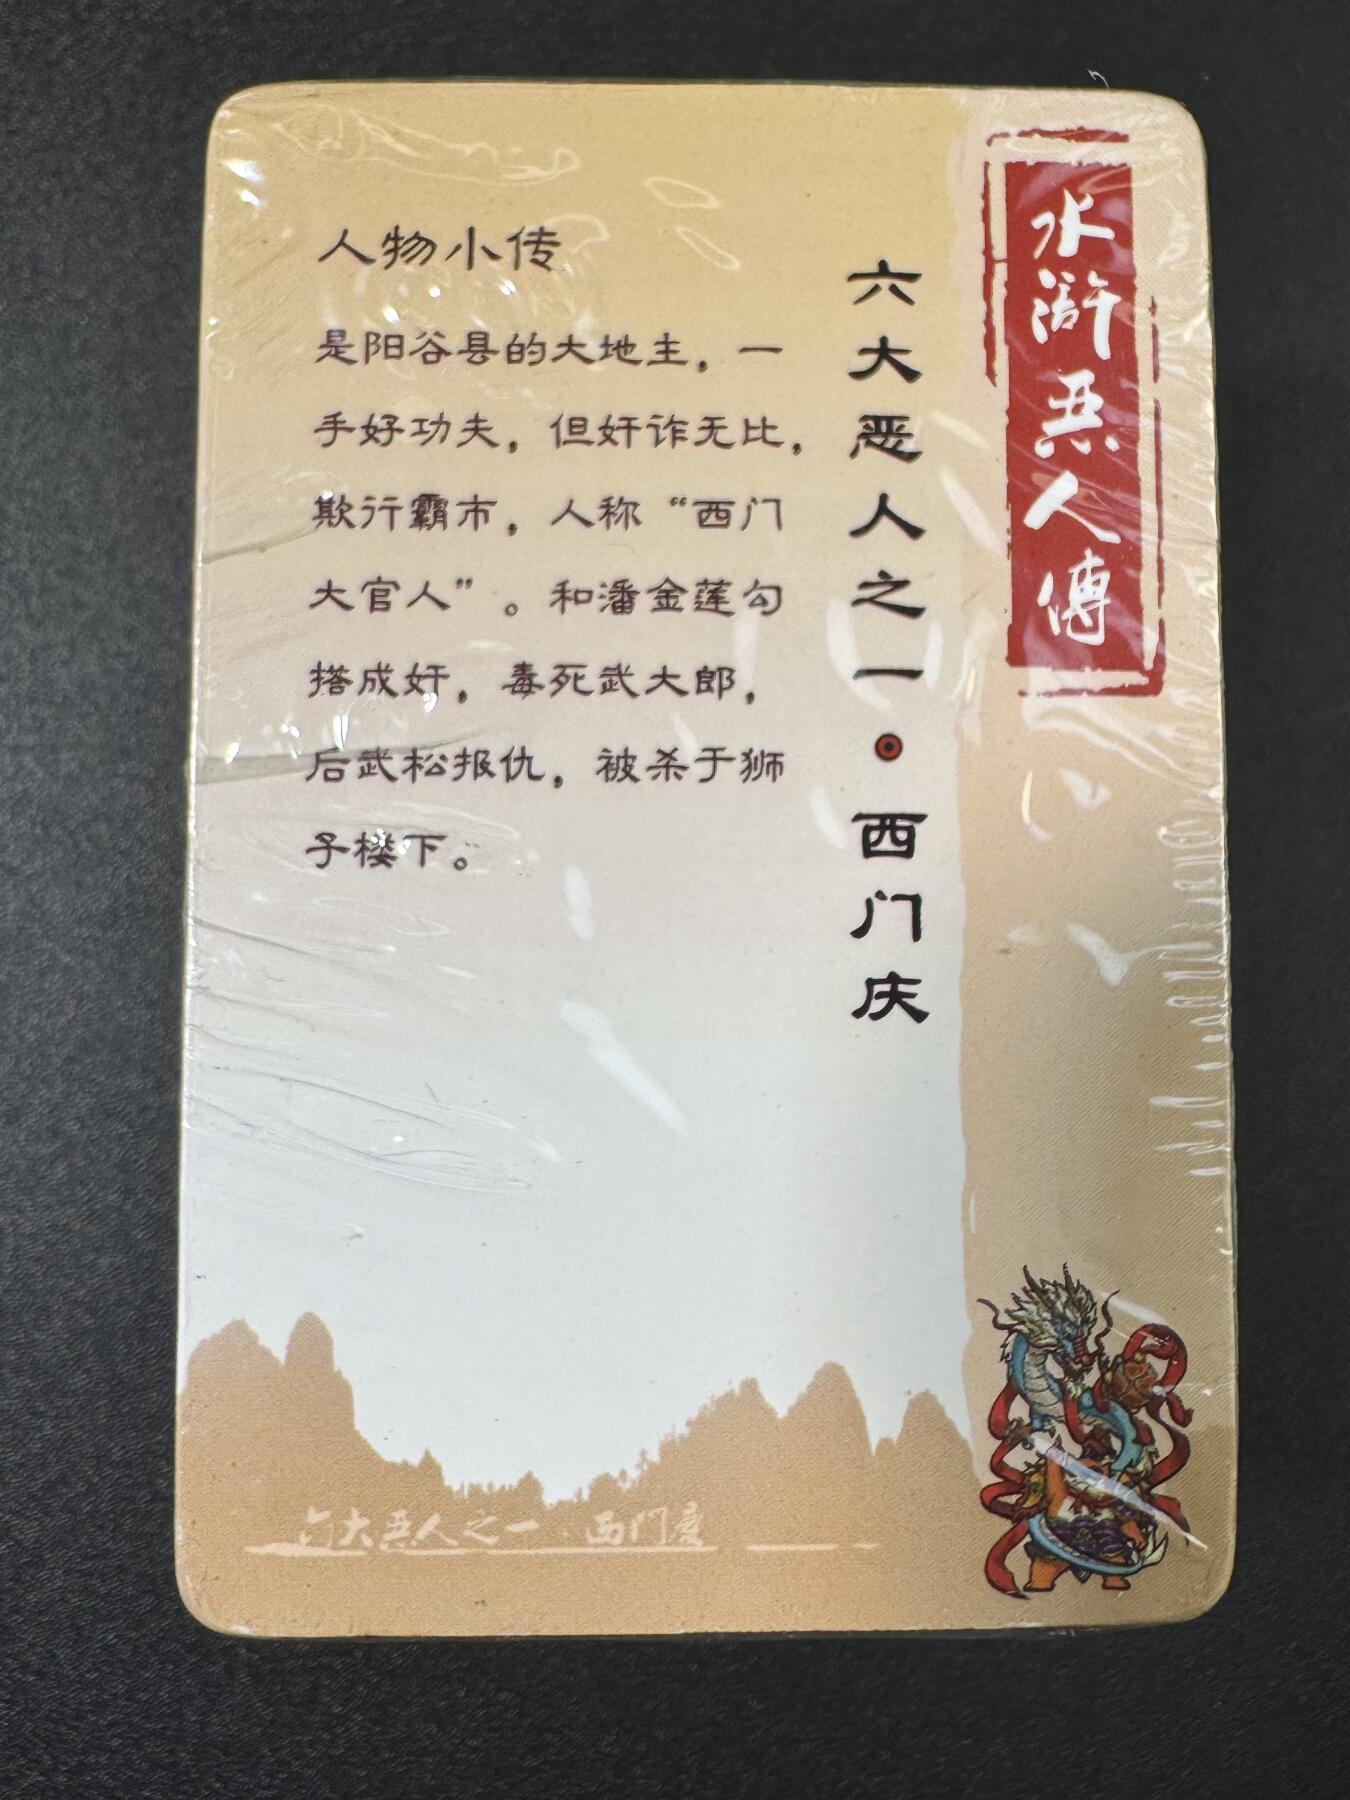 水浒恶人傳
六大恶人之一·西门庆
人物小传
是阳谷县的大地主，一
手好功夫，但奸诈无比，
欺行霸市，人称“西门
大官人”。和潘金莲勾
搭成奸，毒死武大郎，
后武松报仇，被杀于狮
子楼下。
六大恶人之一·西門慶